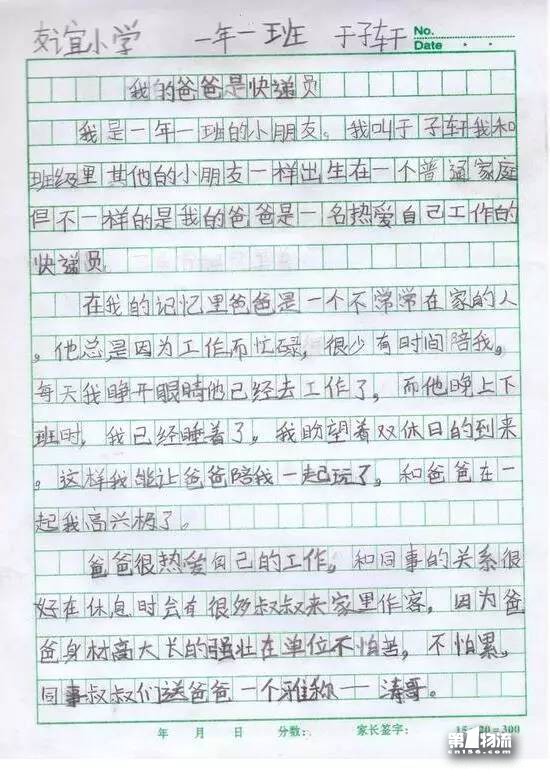 友谊小学 一年一班 于子轩 No.
Date
我的爸爸是快递员
我是一年一班的小朋友。我叫于子轩我和
班级里其他的小朋友一样出生在一个普通家庭
但不一样的是我的爸爸是一名热爱自己工作的
快递员
在我的记忆里爸爸是一个不常常在家的人
。他总是因为工作而忙碌,很少有时间陪我。
每天我睁开眼睛他已经去工作了,而他晚上下
班时,我已经睡着了。我盼望着双休日的到来
。这样我能让爸爸陪我一起玩了,和爸爸在一
起我高兴极了。
爸爸很热爱自己的工作,和同事的关系很
好在休息时会有很多叔叔来家里作客,因为爸
爸身材高大长的强壮在单位不怕苦,不怕累,
同事叔叔们送爸爸一个雅称一涛哥。
年 月 日 分数: 家长签字: 15×20=300
第1物流